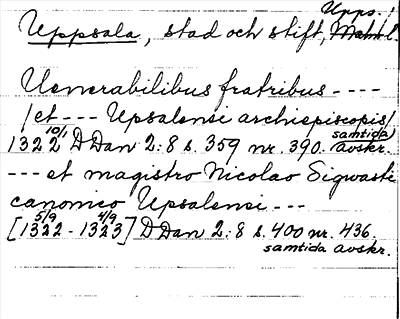 Uppsala, stad och stift, Upps. l.
Venerabilibus fratribus ----
/et --- Upsalensi archiepiscopis/
1322 10/1 DDan 2:8 s. 359 nr. 390. samtida avskr.
--- et magistro Nicolao Sigwasti
canonico Upsalensi ---
[1322 5/9 - 1323 4/9] DDan 2:8 s. 400 nr. 436.
samtida avskr.